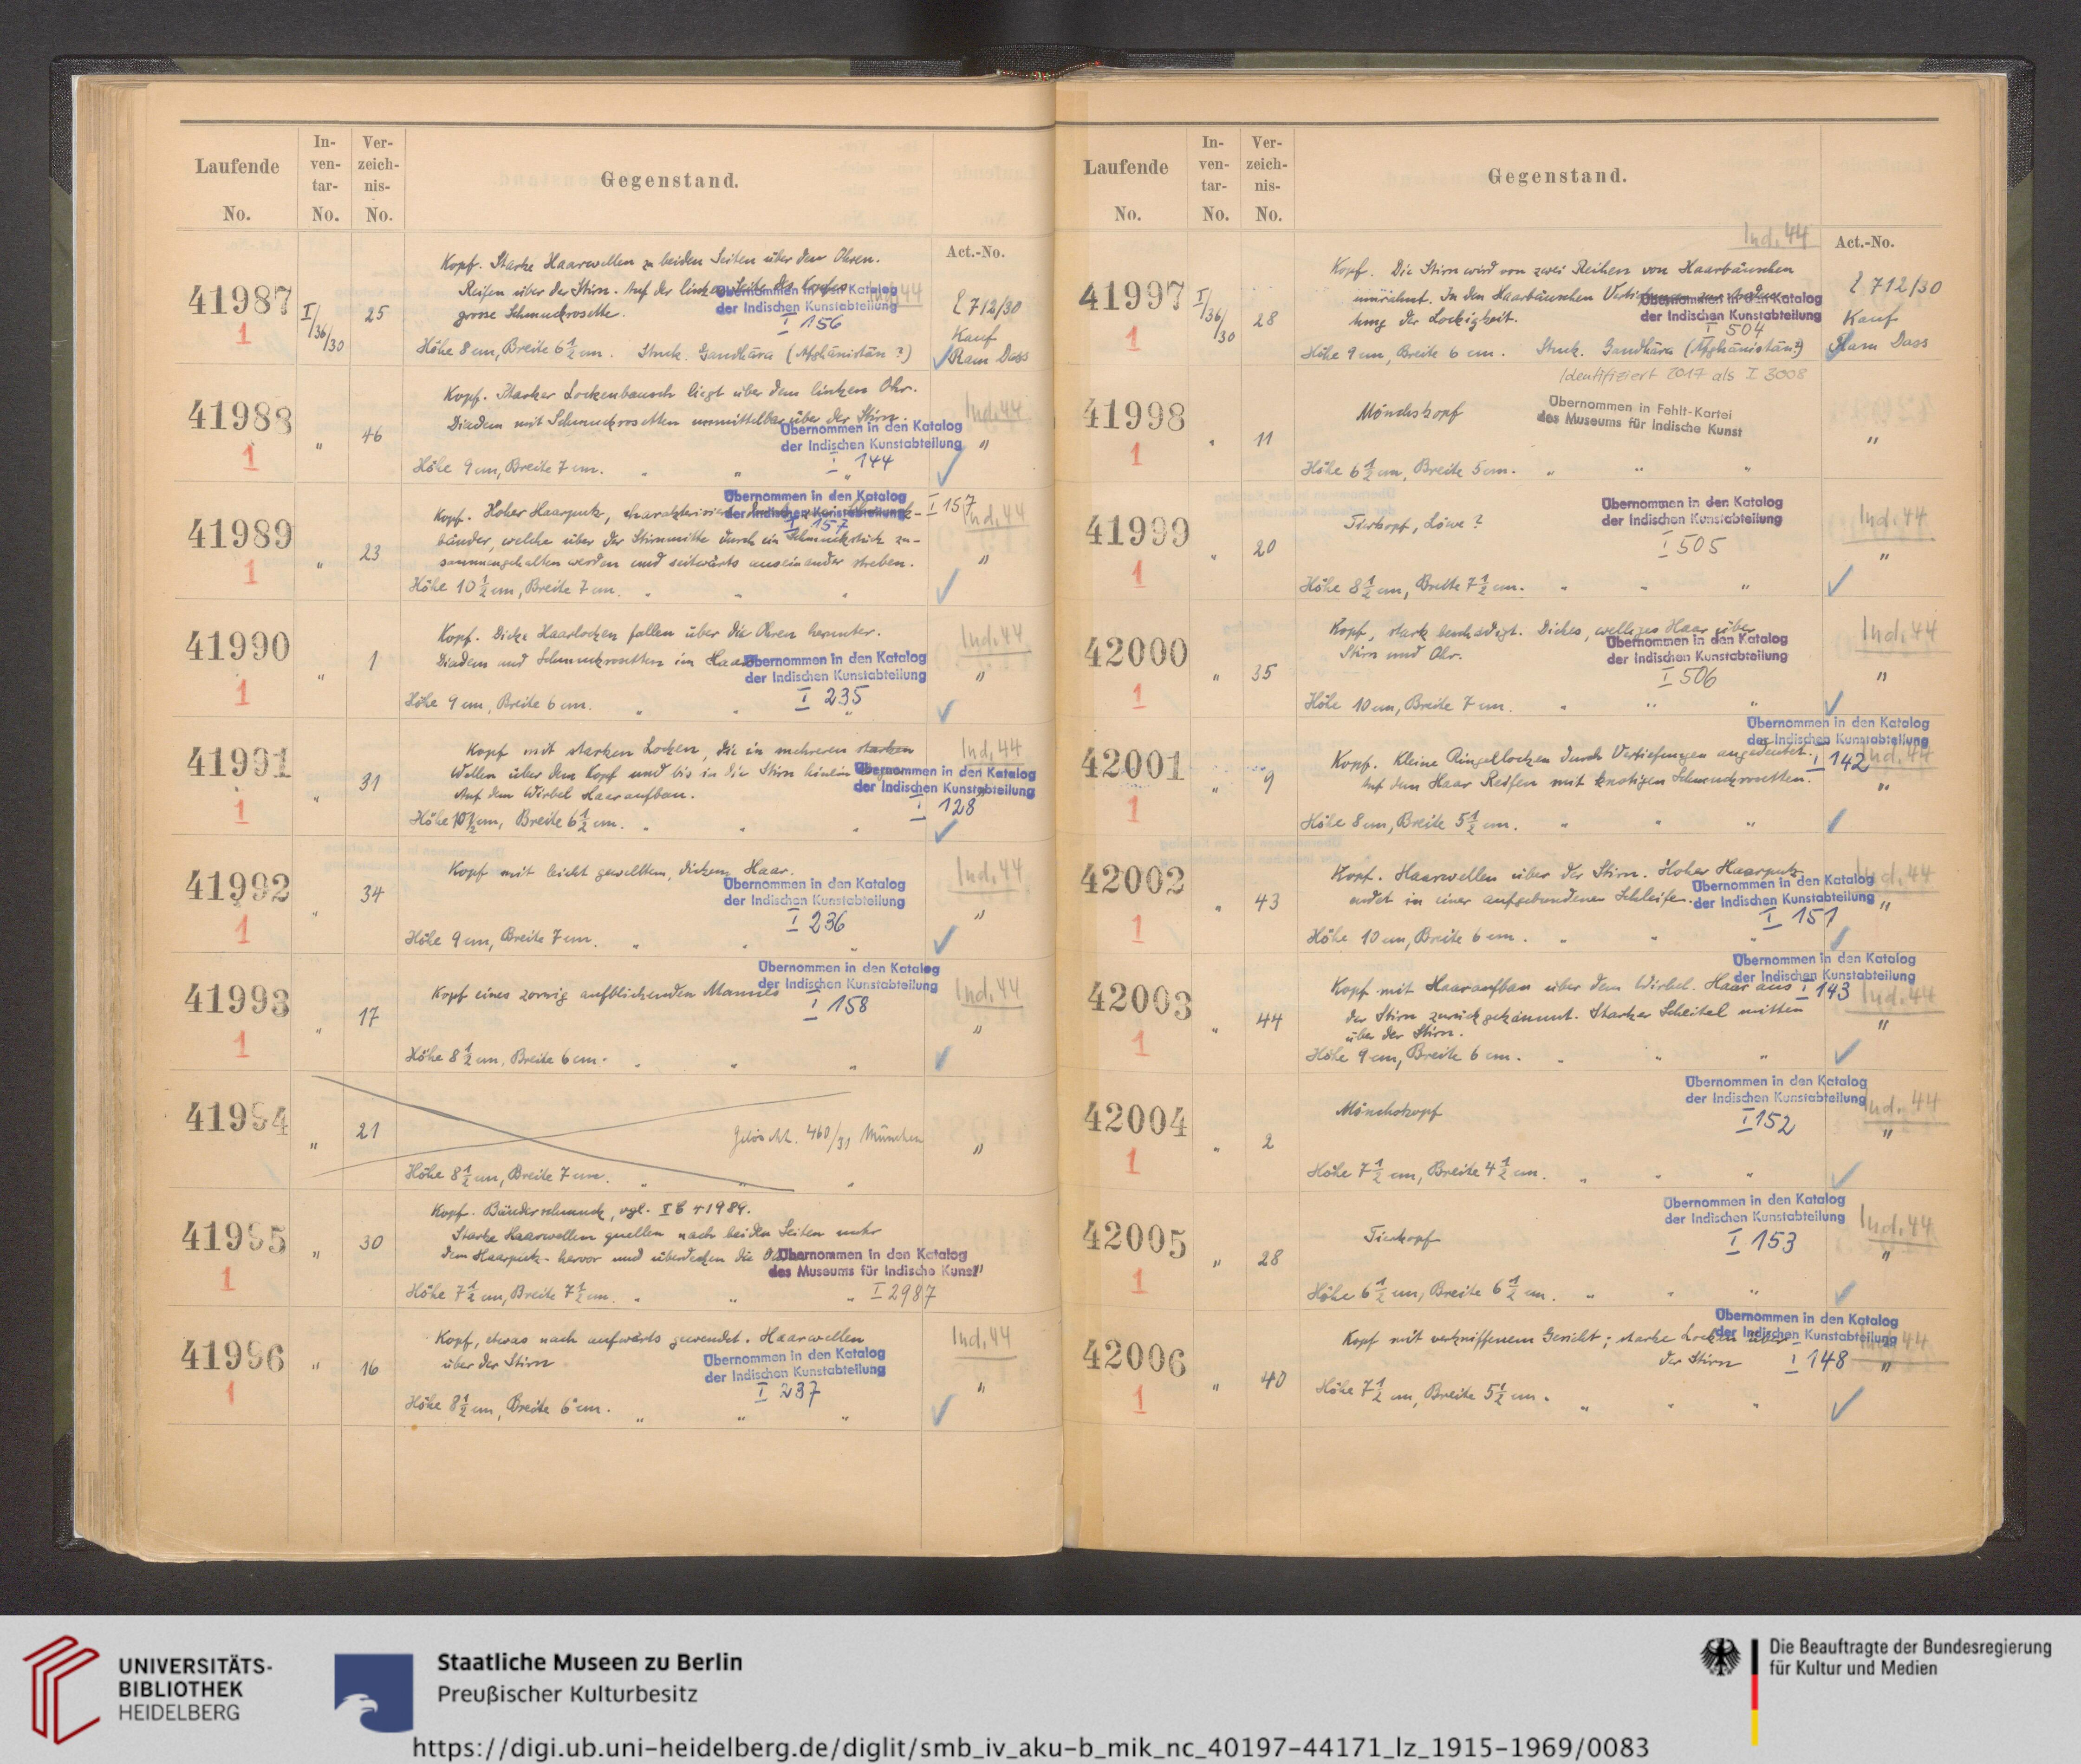 Laufende
No.
In-
ven-
tar-
No.
Ver-
zeich-
nis-
No.
Gegenstand.
Act.-No.
41987
1
I/36/30
25
Kopf. Starke Haarwellen zu beiden Seiten über den Ohren.
Reifen über der Stirn. Auf der linken Seite des Kopfes
grosse Schmuckrosette.
Höhe 8 cm, Breite 6½ cm. Stuck. Gandhāra (Afghānistān?)
Übernommen in den Katalog
der Indischen Kunstabteilung
I 156
Ind. 44
E 712/30
Kauf
Ram Dass
41988
1
"
46
Kopf. Starker Lockenbausch liegt über dem linken Ohr.
Diadem mit Schmuckrosetten unmittelbar über der Stirn.
Höhe 9 cm, Breite 7 cm. " " "
Übernommen in den Katalog
der Indischen Kunstabteilung
I 144
Ind. 44
"
41989
1
"
23
Kopf. Hoher Haarputz, charakterisiert
bänder, welche über der Stirnmitte durch ein Schmuckstück zu-
sammengehalten werden und seitwärts auseinander streben.
Höhe 10½ cm, Breite 7 cm. " " "
Übernommen in den Katalog
der Indischen Kunstabteilung
I 157
I 157
Ind. 44
"
41990
1
"
1
Kopf. Dicke Haarlocken fallen über die Ohren herunter.
Diadem und Schmuckrosetten im Haar
Höhe 9 cm, Breite 6 cm. " " "
Übernommen in den Katalog
der Indischen Kunstabteilung
I 235
Ind. 44
"
41991
1
"
31
Kopf mit starken Locken, die in mehreren starken
Wellen über dem Kopf und bis in die Stirn hinein
Auf dem Wirbel Haaraufbau.
Höhe 10½ cm, Breite 6½ cm. " " "
Übernommen in den Katalog
der Indischen Kunstabteilung
I 128
Ind. 44
41992
1
"
34
Kopf mit leicht gewelltem, dickem Haar.
Höhe 9 cm, Breite 7 cm. " " "
Übernommen in den Katalog
der Indischen Kunstabteilung
I 236
Ind. 44
"
41993
1
"
17
Kopf eines zornig aufblickenden Mannes
Höhe 8½ cm, Breite 6 cm. " " "
Übernommen in den Katalog
der Indischen Kunstabteilung
I 158
Ind. 44
"
41994
"
21
Gelöscht. 460/31 München
Höhe 8½ cm, Breite 7 cm. " " "
"
41995
1
"
30
Kopf. Bänderschmuck, vgl. I C 41989.
Starke Haarwellen quellen nach beiden Seiten unter
dem Haarputz hervor und überdecken die
Höhe 7½ cm, Breite 7½ cm. " " "
Übernommen in den Katalog
des Museums für Indische Kunst
I 2987
"
41996
1
"
16
Kopf, etwas nach aufwärts gewendet. Haarwellen
über der Stirn
Höhe 8½ cm, Breite 6 cm. " " "
Übernommen in den Katalog
der Indischen Kunstabteilung
I 237
Ind. 44
"
Laufende
No.
In-
ven-
tar-
No.
Ver-
zeich-
nis-
No.
Gegenstand.
Ind. 44
Act.-No.
41997
1
I/36/30
28
Kopf. Die Stirn wird von zwei Reihen von Haarbäuschen
umrahmt. In den Haarbäuschen
tung der Lockigkeit.
Höhe 9 cm, Breite 6 cm. Stuck. Gandhāra (Afghānistān?)
Übernommen in den Katalog
der Indischen Kunstabteilung
I 504
E 712/30
Kauf
Ram Dass
Identifiziert 2017 als I 3008
41998
1
"
11
Mönchskopf
Höhe 6½ cm, Breite 5 cm. " " "
Übernommen in Fehlt-Kartei
des Museums für Indische Kunst
"
41999
1
"
20
Tierkopf, Löwe?
Höhe 8½ cm, Breite 7½ cm. " " "
Übernommen in den Katalog
der Indischen Kunstabteilung
I 505
Ind. 44
"
42000
1
"
35
Kopf, stark beschädigt. Dickes, welliges Haar über
Stirn und Ohr.
Höhe 10 cm, Breite 7 cm. " " "
Übernommen in den Katalog
der Indischen Kunstabteilung
I 506
Ind. 44
"
42001
1
"
9
Kopf. Kleine Ringellocken durch Vertiefungen angedeutet.
Auf dem Haar Reifen mit knotigen Schmuckrosetten.
Höhe 8 cm, Breite 5½ cm. " " "
Übernommen in den Katalog
der Indischen Kunstabteilung
I 142
Ind. 44
"
42002
1
"
43
Kopf. Haarwellen über der Stirn. Hoher Haarputz
endet in einer aufgebundenen Schleife.
Höhe 10 cm, Breite 6 cm. " " "
Übernommen in den Katalog
der Indischen Kunstabteilung
I 151
Ind. 44
"
42003
1
"
44
Kopf mit Haaraufbau über dem Wirbel. Haar aus
der Stirn zurückgekämmt. Starker Scheitel mitten
über der Stirn.
Höhe 9 cm, Breite 6 cm. " " "
Übernommen in den Katalog
der Indischen Kunstabteilung
I 143
Ind. 44
"
42004
1
"
2
Mönchskopf
Höhe 7½ cm, Breite 4½ cm. " " "
Übernommen in den Katalog
der Indischen Kunstabteilung
I 152
Ind. 44
"
42005
1
"
28
Tierkopf
Höhe 6½ cm, Breite 6½ cm. " " "
Übernommen in den Katalog
der Indischen Kunstabteilung
I 153
Ind. 44
"
42006
1
"
40
Kopf mit verkniffenem Gesicht; starke Locken über
der Stirn
Höhe 7½ cm, Breite 5½ cm. " " "
Übernommen in den Katalog
der Indischen Kunstabteilung
I 148
Ind. 44
"
UNIVERSITÄTS-
BIBLIOTHEK
HEIDELBERG
Staatliche Museen zu Berlin
Preußischer Kulturbesitz
Die Beauftragte der Bundesregierung
für Kultur und Medien
https://digi.ub.uni-heidelberg.de/diglit/smb_iv_aku-b_mik_nc_40197-44171_lz_1915-1969/0083